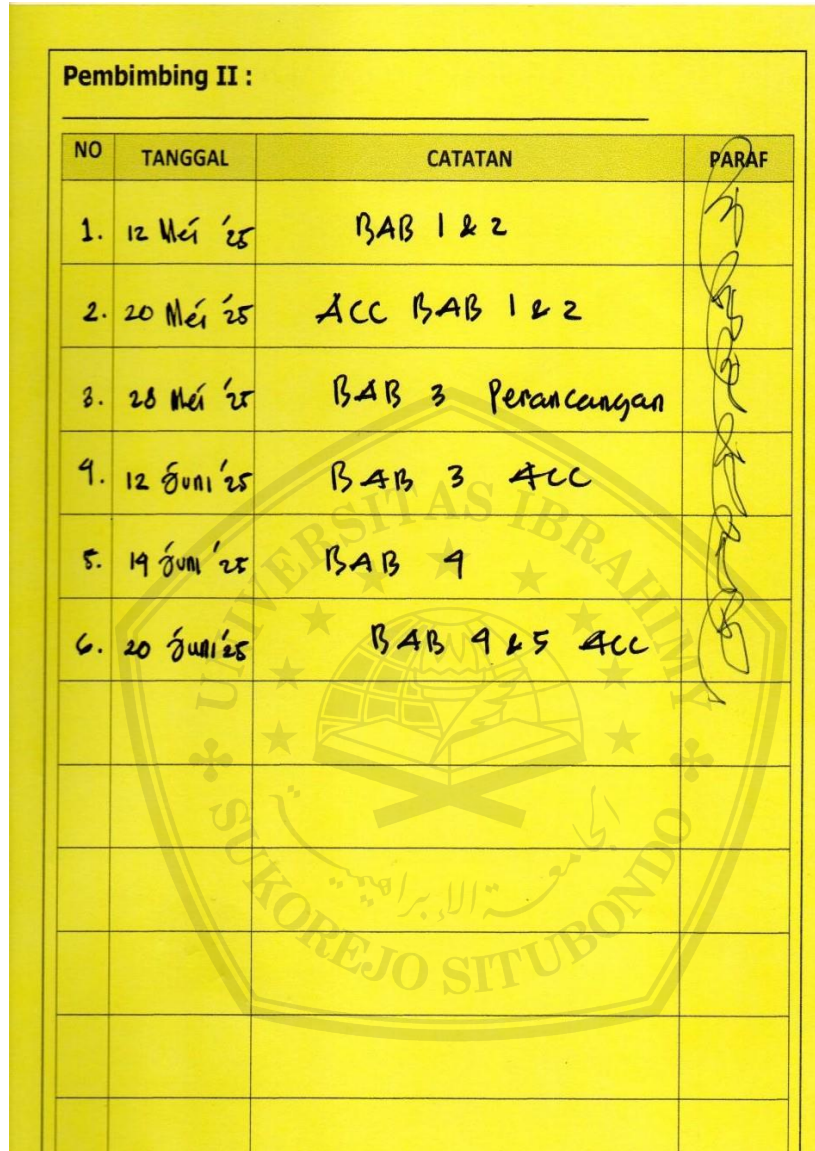 Pembimbing II :
NO TANGGAL CATATAN PARAF
1. 12 Mei '25 BAB 1 & 2
2. 20 Mei '25 ACC BAB 1 & 2
3. 28 Mei '25 BAB 3 Perancangan
4. 12 Juni '25 BAB 3 ACC
5. 19 Juni '25 BAB 4
6. 20 Juni '25 BAB 4 & 5 ACC
UNIVERSITAS IBRAHIMY
الجامعة الإبراهيمية
SUKOREJO SITUBONDO